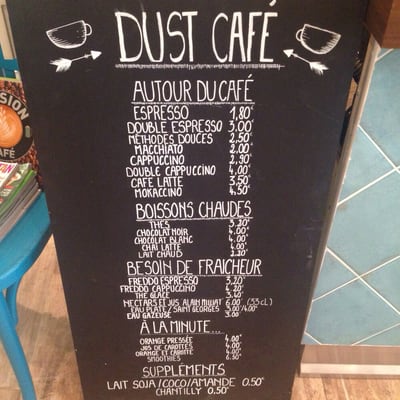 DUST CAFÉ
AUTOUR DU CAFÉ
ESPRESSO 1,80€
DOUBLE ESPRESSO 3.00€
MÉTHODES DOUCES 2.50€
MACCHIATO 2.00€
CAPPUCCINO 2,90€
DOUBLE CAPPUCCINO 4.00€
CAFE LATTE 3.50€
MOKACCINO 4.50€
BOISSONS CHAUDES
THÉS 3.20€
CHOCOLAT NOIR 4.00€
CHOCOLAT BLANC 4.00€
CHAÏ LATTE 4.00€
LAIT CHAUD 2.20€
BESOIN DE FRAICHEUR
FREDDO ESPRESSO 3.20€
FREDDO CAPPUCCINO 4.20€
THÉ GLACÉ 3.40€
NECTARS ET JUS ALAIN MILLIAT 6.00€ (33CL)
EAU PLATE/ SAINT GEORGES 4.00€
EAU GAZEUSE 3.00€
À LA MINUTE...
ORANGE PRESSÉE 4.00€
JUS DE CAROTTES 4.00€
ORANGE ET CAROTTE 4.00€
SMOOTHIES 6.50€
SUPPLÉMENTS
LAIT SOJA/COCO/AMANDE 0.50€
CHANTILLY 0.50€
SION
AFÉ